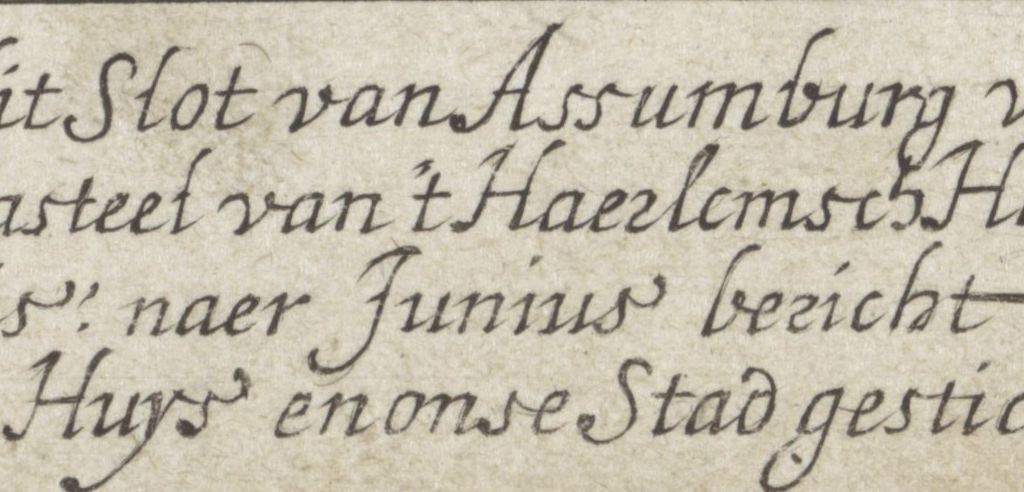 it Slot van Assumburg v
asteel van 't Haerlemsch H
s: naer Junius bericht
Huys en onse Stad gestic